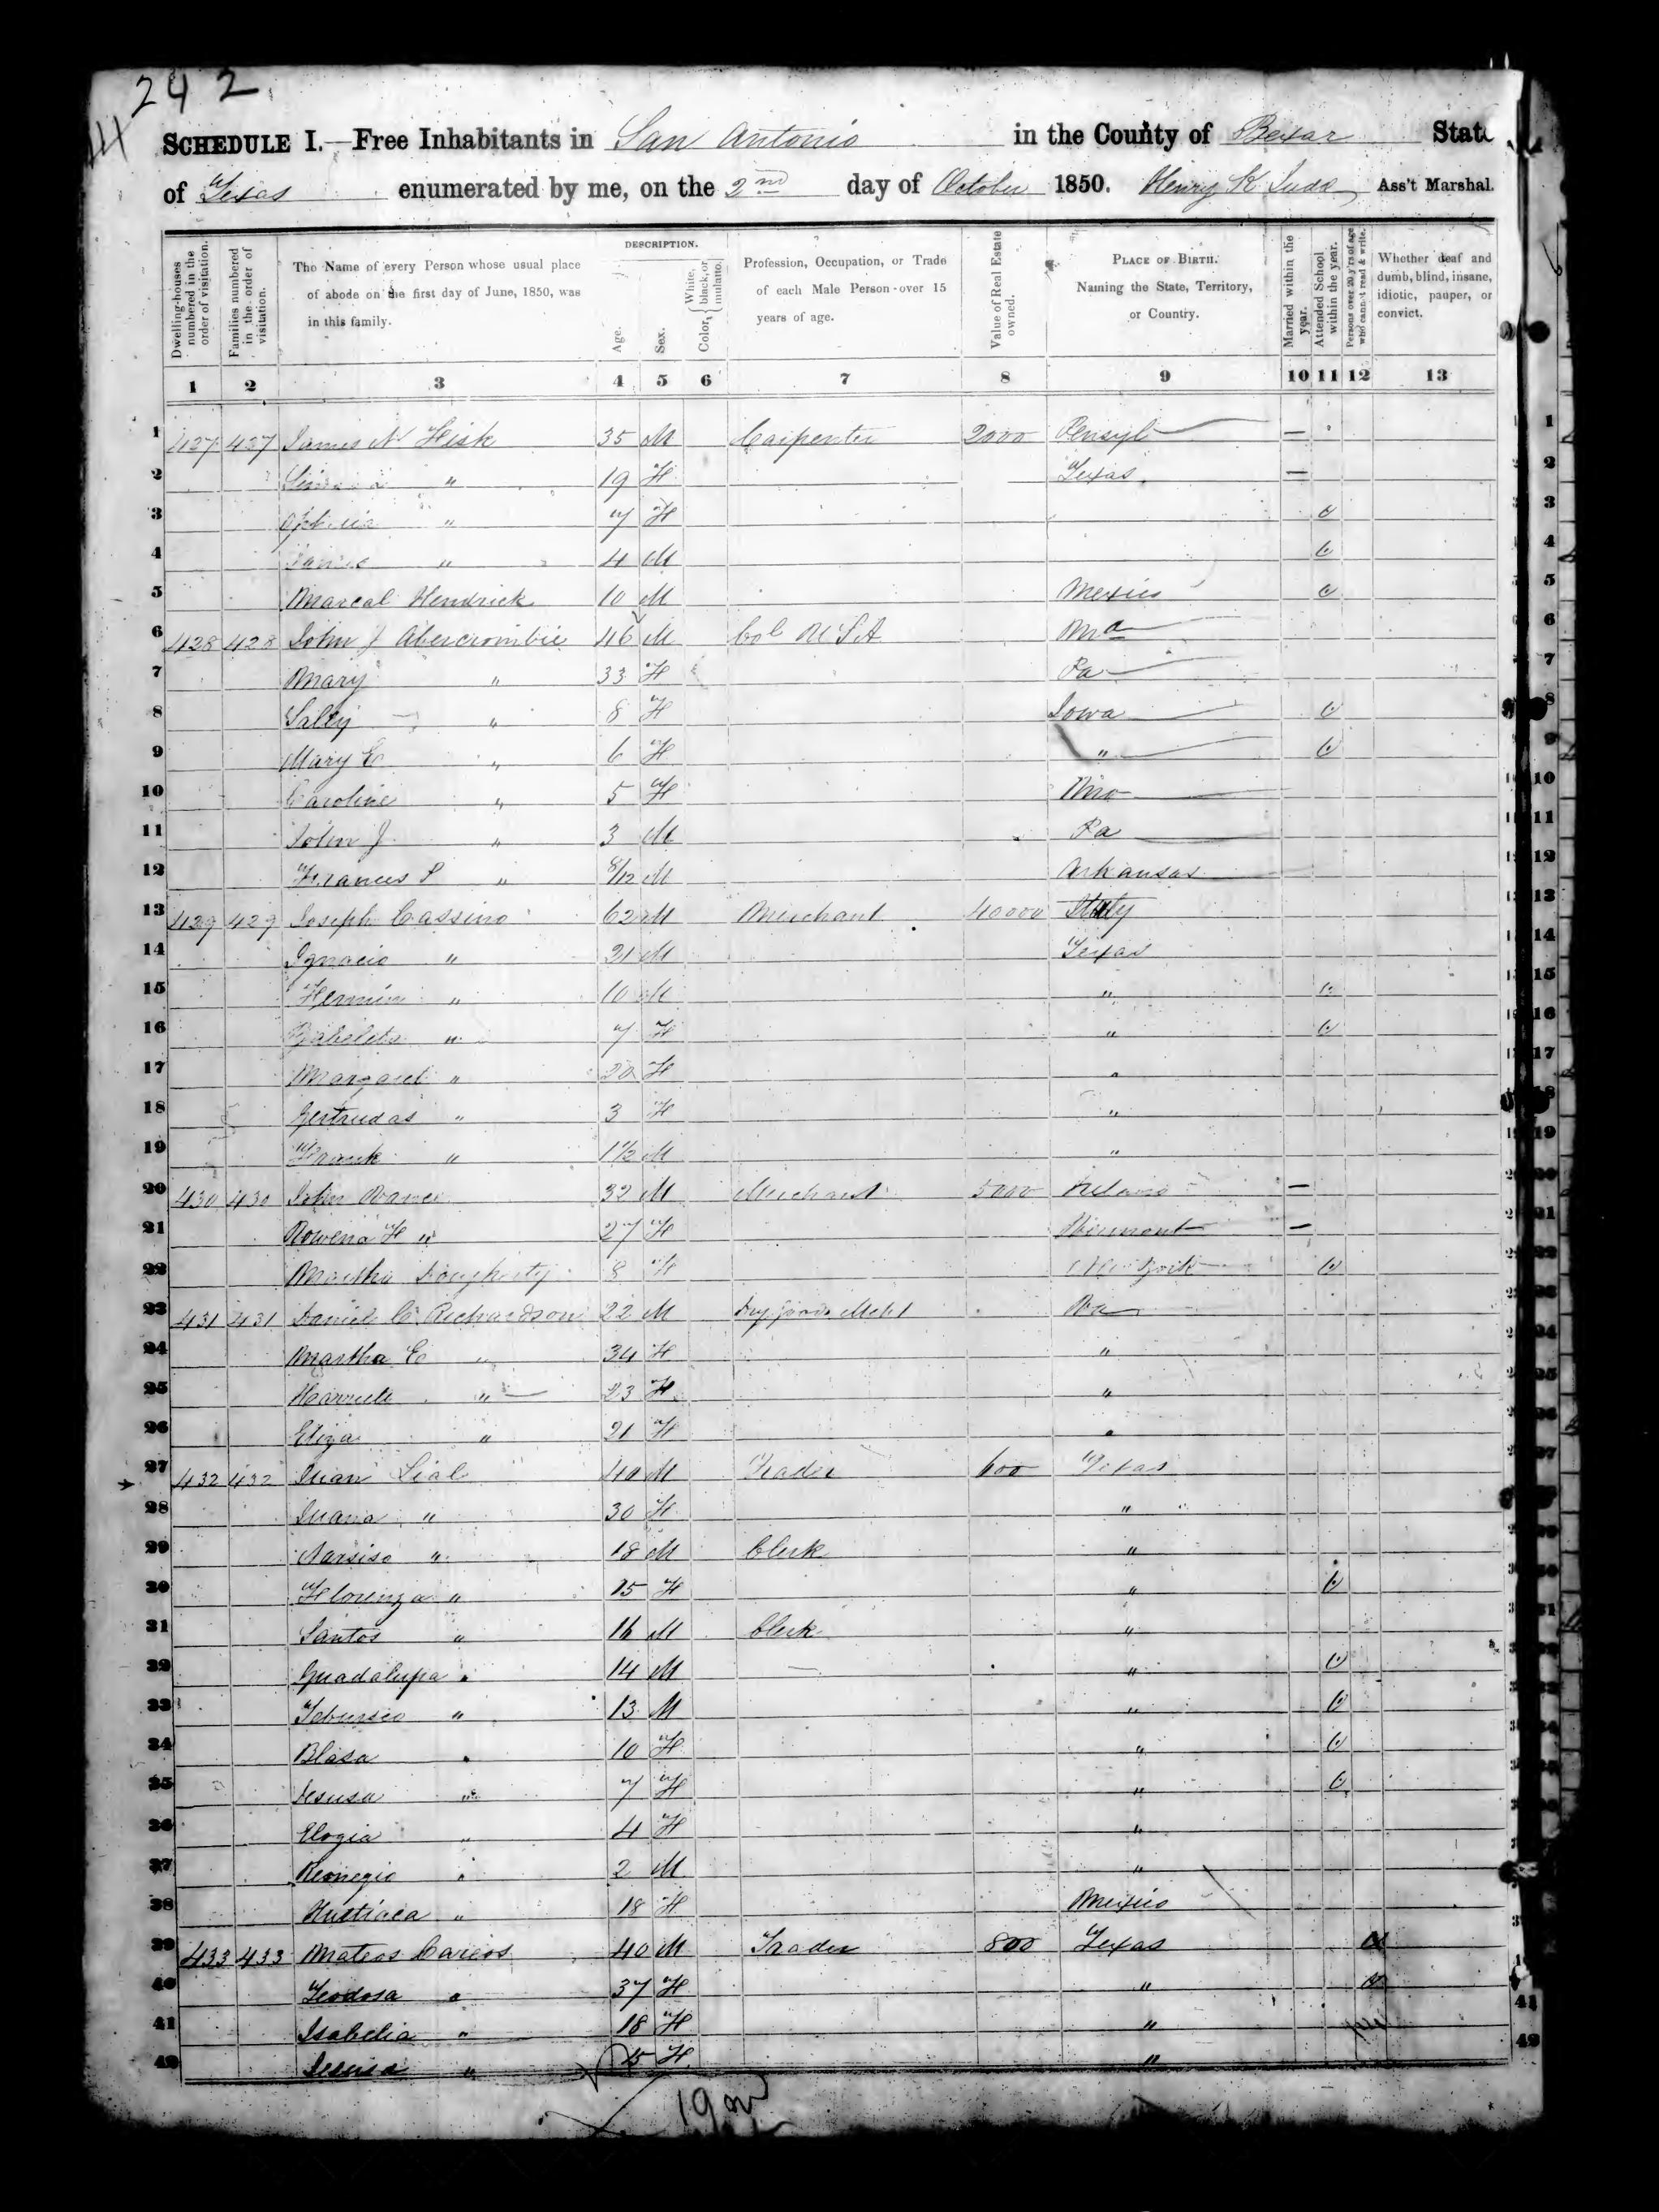 242
SCHEDULE I.—Free Inhabitants in San Antonio in the County of Bexar State
of Texas enumerated by me, on the 2nd day of October 1850. Henry K Judd Ass't Marshal.
Dwelling-houses numbered in the order of visitation.
Families numbered in the order of visitation.
The Name of every Person whose usual place of abode on the first day of June, 1850, was in this family.
DESCRIPTION.
Age.
Sex.
Color, { White, black, or mulatto.
Profession, Occupation, or Trade of each Male Person over 15 years of age.
Value of Real Estate owned.
PLACE OF BIRTH. Naming the State, Territory, or Country.
Married within the year.
Attended School within the year.
Persons over 20 y'rs of age who cannot read & write.
Whether deaf and dumb, blind, insane, idiotic, pauper, or convict.
1 2 3 4 5 6 7 8 9 10 11 12 13
1 427 427 James N Fisk 35 M Carpenter 2000 Pensyl — 1
2 " 19 F Texas — 2
3 " 7 F 3
4 James " 4 M 4
5 Marcal Hendrick 10 M Mexico 5
6 428 428 John J Abercrombie 46 M Col U S A 6
7 Mary " 33 F Pa 7
8 Sally " 8 F Iowa 8
9 Mary E " 6 F " 9
10 Caroline " 5 F Mo 10
11 John J " 3 M Pa 11
12 Frances S " 8/12 M Arkansas 12
13 429 429 Joseph Cassino 62 M Merchant 40000 Italy 13
14 Ignacio " 21 M Texas 14
15 " 10 M " 15
16 " 7 F " 16
17 Margaret " 20 F " 17
18 Gertrudas " 3 F " 18
19 Frank " 1½ M " 19
20 430 430 John 32 M Merchant 5000 Ireland — 20
21 Rowena F " 27 F Vermont — 21
22 Martha Dougherty 8 F 22
23 431 431 Daniel C Richardson 22 M Dry goods Mcht Va 23
24 Martha E " 34 F " 24
25 Harriett " 23 F " 25
26 Eliza " 21 F " 26
27 432 432 Juan Lial 40 M Trader 600 Texas 27
28 Juana " 30 F " 28
29 Narsiso " 18 M Clerk " 29
30 Florenza " 15 F " 30
31 Santos " 16 M Clerk " 31
32 Guadalupa " 14 M " 32
33 Teburseo " 13 M " 33
34 Blasa " 10 F " 34
35 Jesusa " 7 F " 35
36 Elogia " 4 F "
37 Remegio " 2 M "
38 " 18 F Mexico
39 433 433 Mateos Careos 40 M Trader 800 Texas
40 Teodosa " 37 F "
41 Isabelia " 18 F " 41
42 Jesusa " 15 F " 42
19